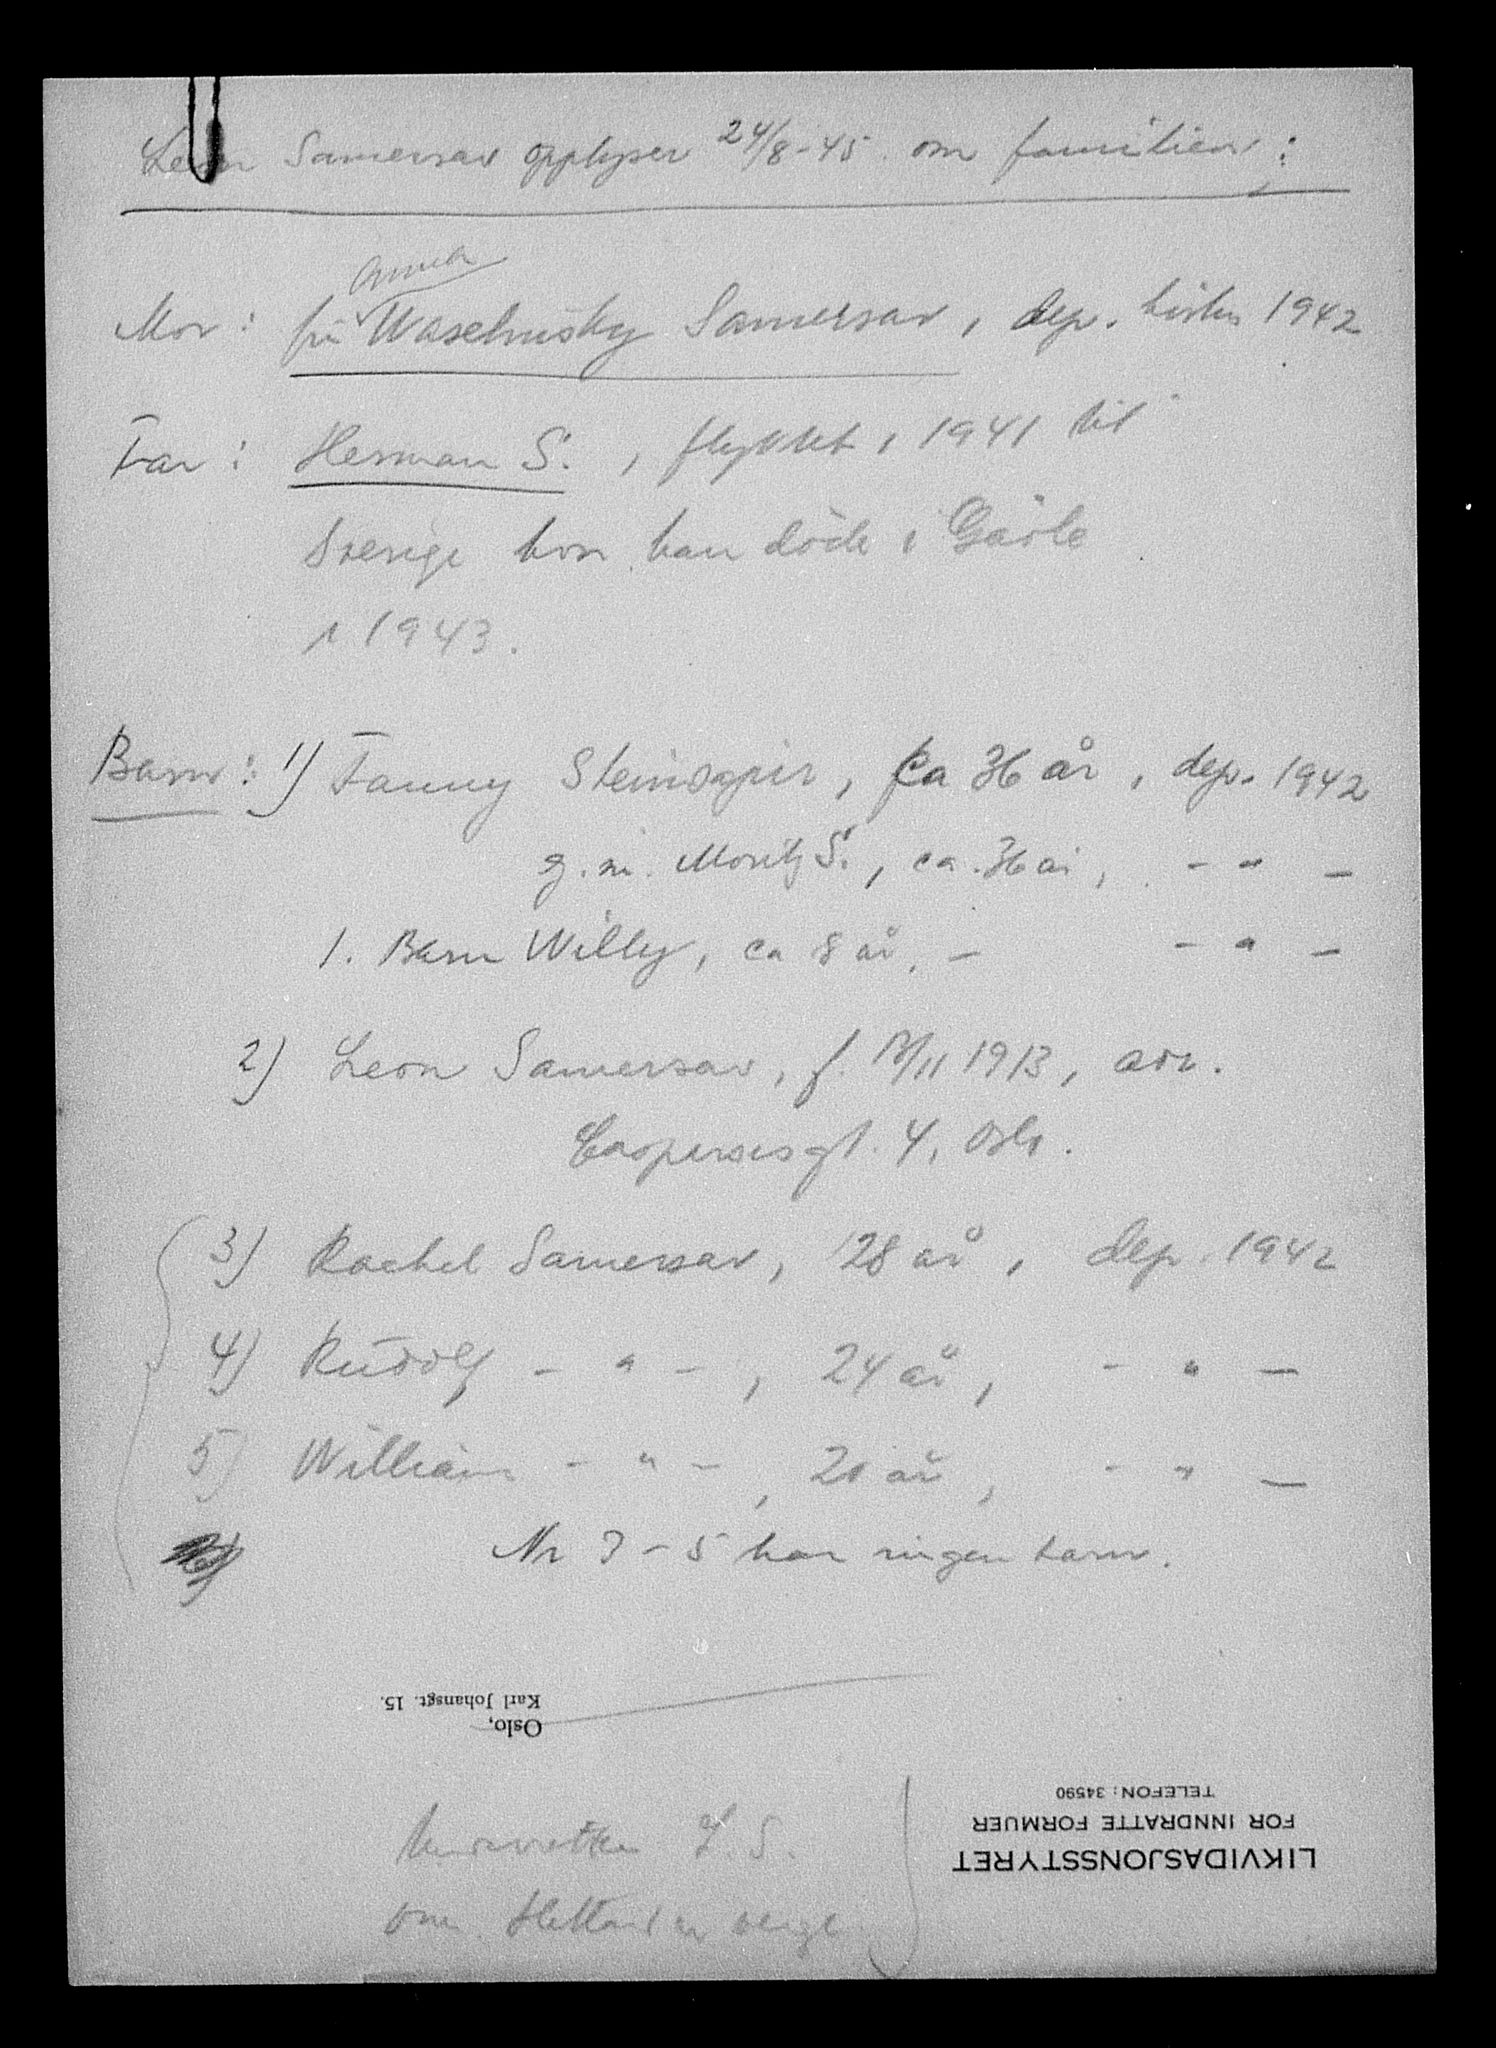 Leon Samersav opplyser 24/8-45 om familien:
Anna
Mor: fru Waschnisky Samersav, dep. hösten 1942
Far: Herman S., flyktet i 1941 til
Sverige hvor han döde i Gävle
i 1943.
Barn: 1) Fanny Steinsapir, ca 36 år, dep. 1942
g.m. Moritz S., ca. 36 år, - " -
1. Barn Willy, ca 8 år, - - " -
2) Leon Samersav, f. 13/11 1913, adr.
Caspersesgt. 4, Oslo.
3) Rachel Samersav, 28 år, dep. 1942
4) Rudolf - " -, 24 år, - " -
5) William - " -, 20 år, - " -
Nr 3-5 har ingen barn.
Oslo,
Karl Johansgt. 15.
L. S.
om
LIKVIDASJONSSTYRET
FOR INNDRATTE FORMUER
TELEFON: 34590